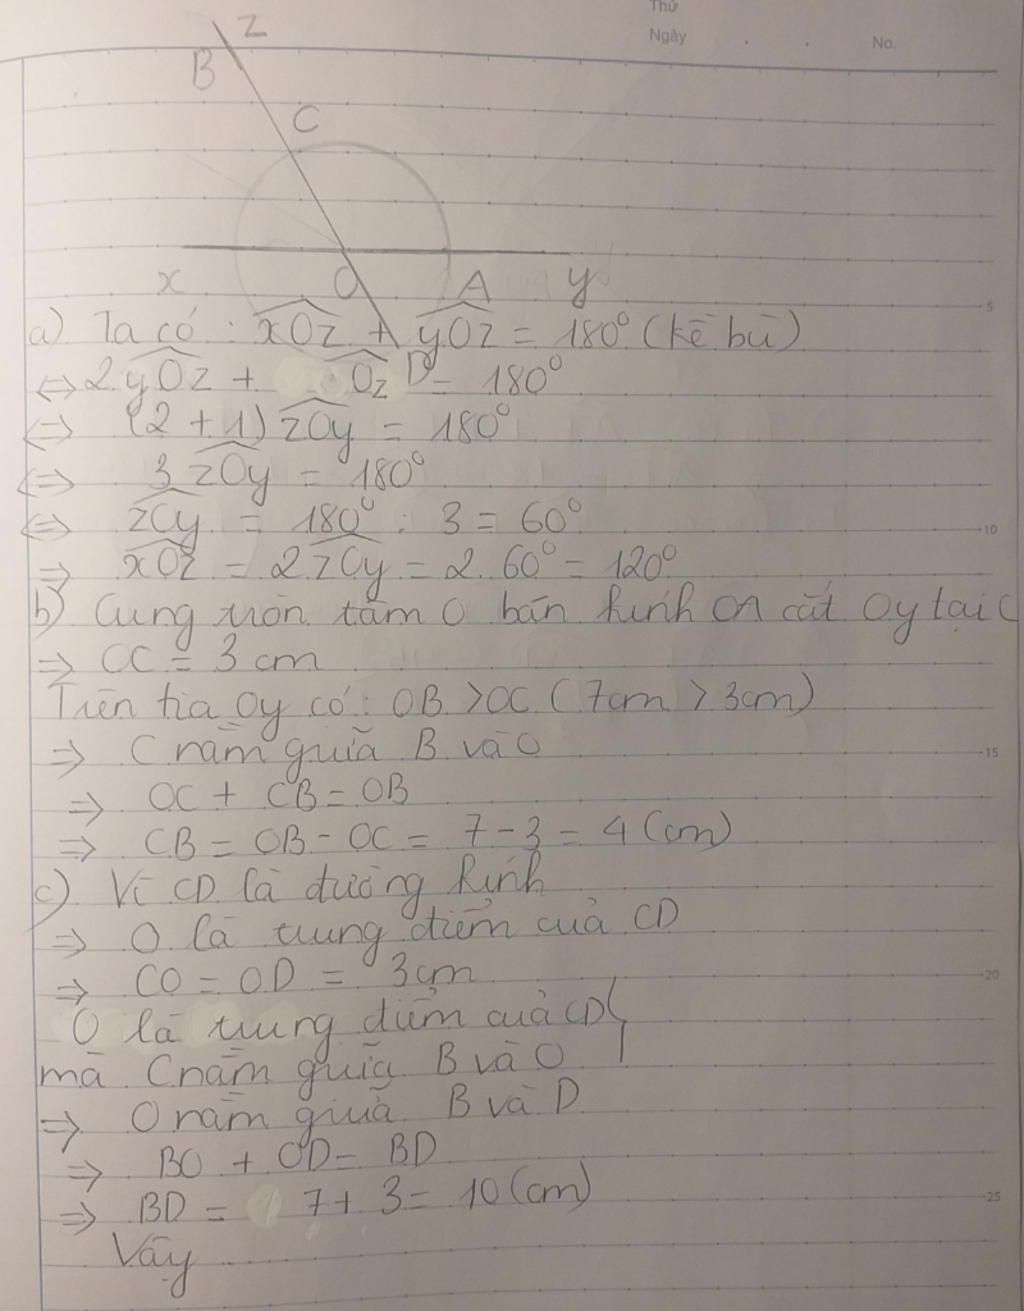 Thứ
Ngày . . No.
z
B
C
x O A y
D
a) Ta có: xOz + yOz = 180° (kề bù)
⇔ 2 yOz + Oz = 180°
⇔ (2 + 1) zOy = 180°
⇔ 3 zOy = 180°
⇔ zOy = 180° : 3 = 60°
⇒ xOz = 2 zOy = 2. 60° = 120°
b) Cung tròn tâm O bán kính OA cắt Oy tại C
⇒ OC = 3 cm
Trên tia Oy có: OB > OC (7cm > 3cm)
⇒ C nằm giữa B và O
⇒ OC + CB = OB
⇒ CB = OB - OC = 7 - 3 = 4 (cm)
c) Vì CD là đường kính
⇒ O là trung điểm của CD
⇒ CO = OD = 3cm
O là trung điểm của CD
mà C nằm giữa B và O
⇒ O nằm giữa B và D
⇒ BO + OD = BD
⇒ BD = 7 + 3 = 10 (cm)
Vậy
5
10
15
20
25